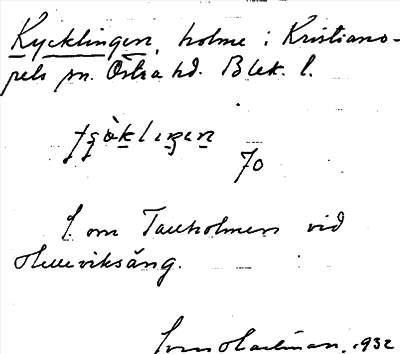 Kycklingen, holme i Kristiano-
pels sn. Östra hd. Blek. l.
70
S. om Tallholmen vid
Helleviksäng.
Sven Hallman. 1932